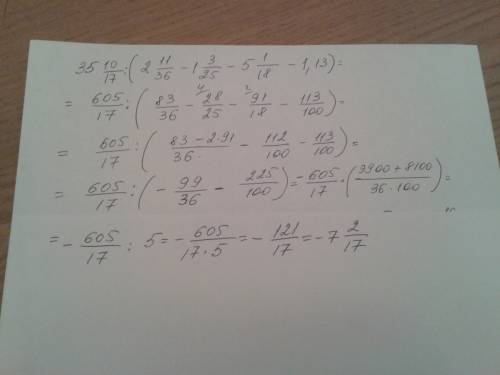 35 10/17 : (2 11/36 - 1 3/25 - 5 1/18 - 1,13) =
= 605/17 : (83/36 - 28/25 - 91/18 - 113/100) =
= 605/17 : ((83 - 2·91)/36 - 112/100 - 113/100) =
= 605/17 : (- 99/36 - 225/100) = - 605/17 : ((9900 + 8100)/(36·100)) =
= - 605/17 : 5 = - 605/(17·5) = - 121/17 = - 7 2/17